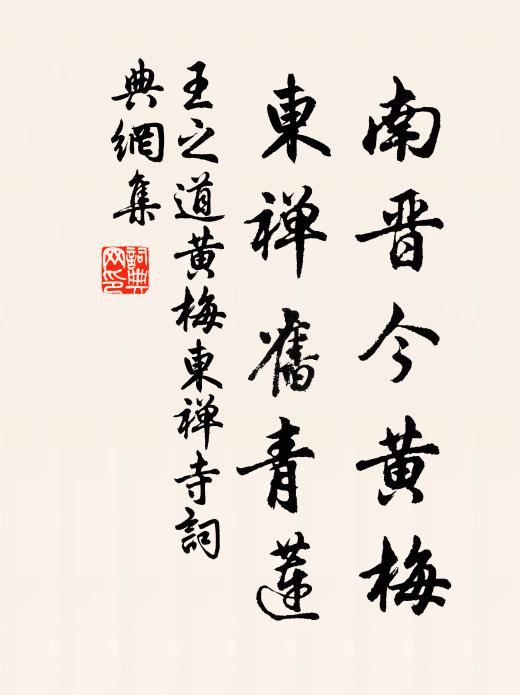 南晋今黄梅
東禅舊青蓮
王之道黄梅東禅寺詞
典網集
詞典網印